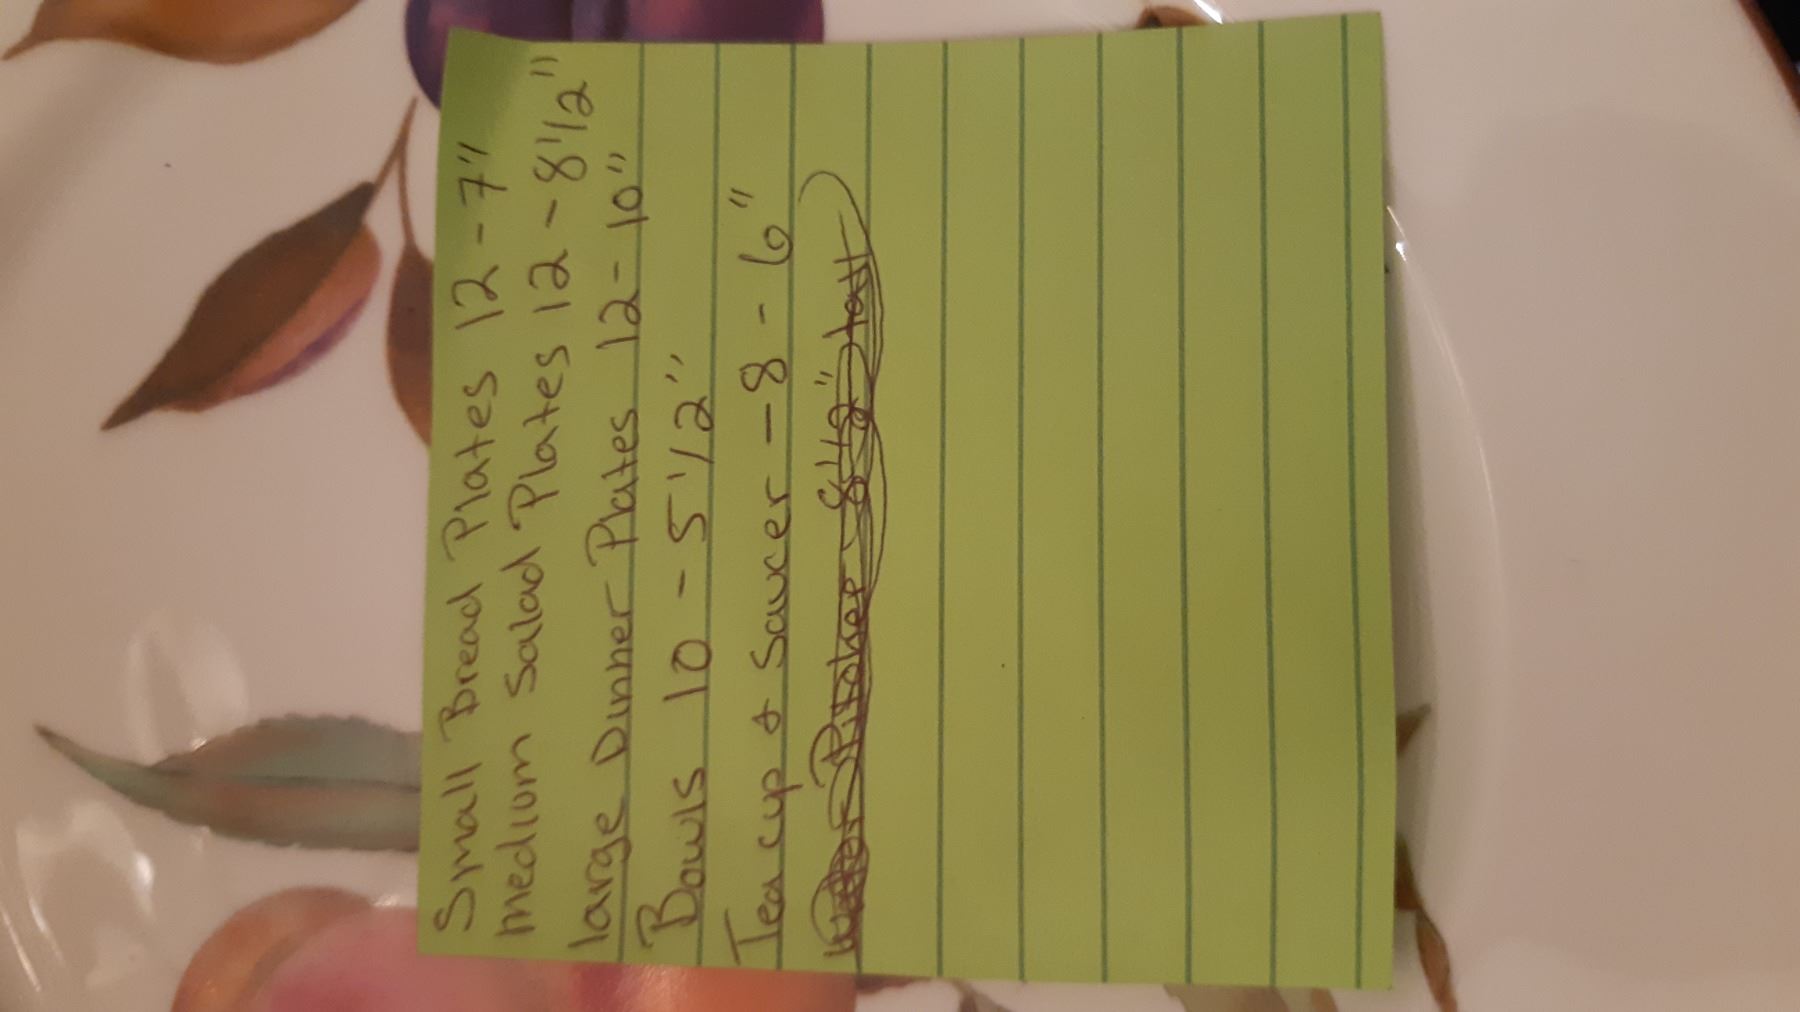 Small Bread Plates 12 - 7"
medium Salad Plates 12 - 8 1/2"
large Dinner Plates 12 - 10"
Bowls 10 - 5 1/2"
Tea cup & Saucer - 8 - 6"
Water Pitcher 8 1/2" tall